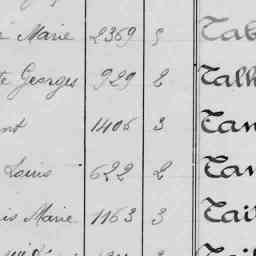 Marie 2369 5 Tab
Georges 929 2 Tall
1406 3 Tan
Louis 622 2 Tan
Marie 1163 3 Tai